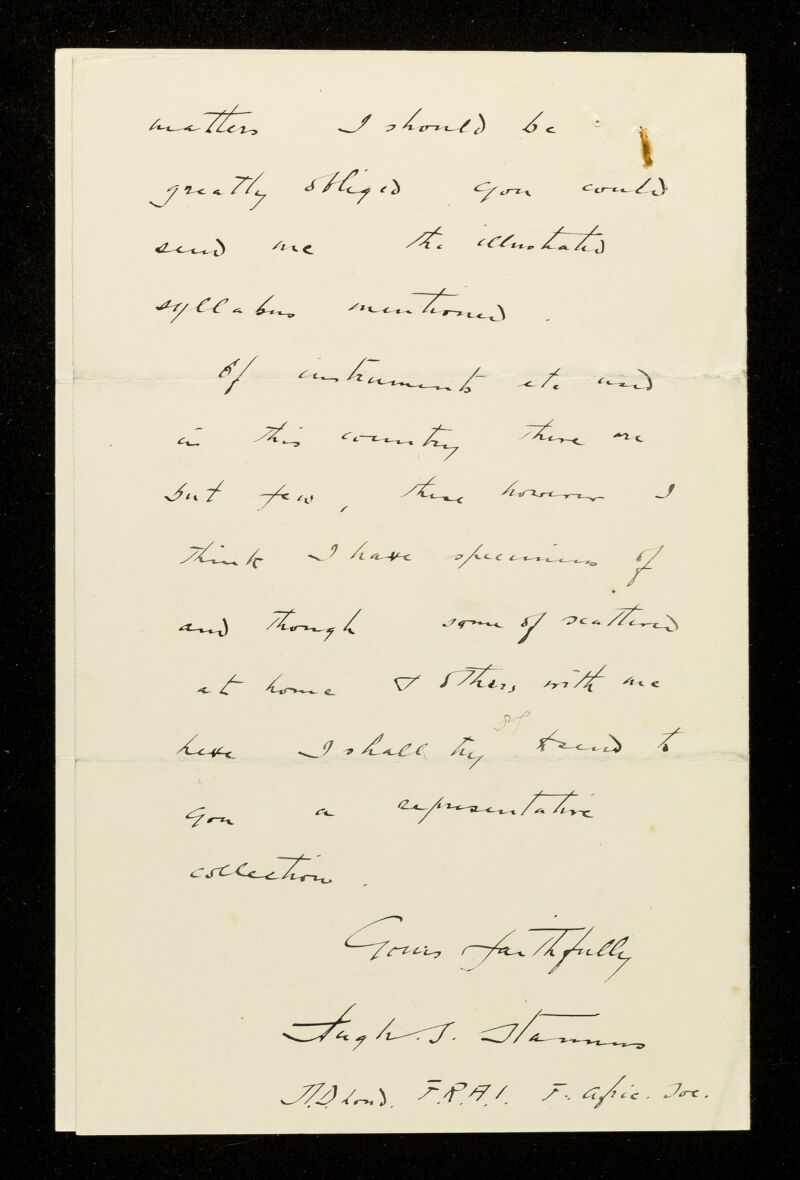 matters I should be
greatly obliged you could
send me the illustrated
syllabus mentioned.
Of instruments etc used
in this country there are
but few, these however I
think I have specimens of
and though some of scattered
at home & others with me
here I shall try & send to
you a representative
collection.
Yours faithfully
Hugh. S. Stannus
M.D. Lond. F.R.A.I. F. Afric. Soc.